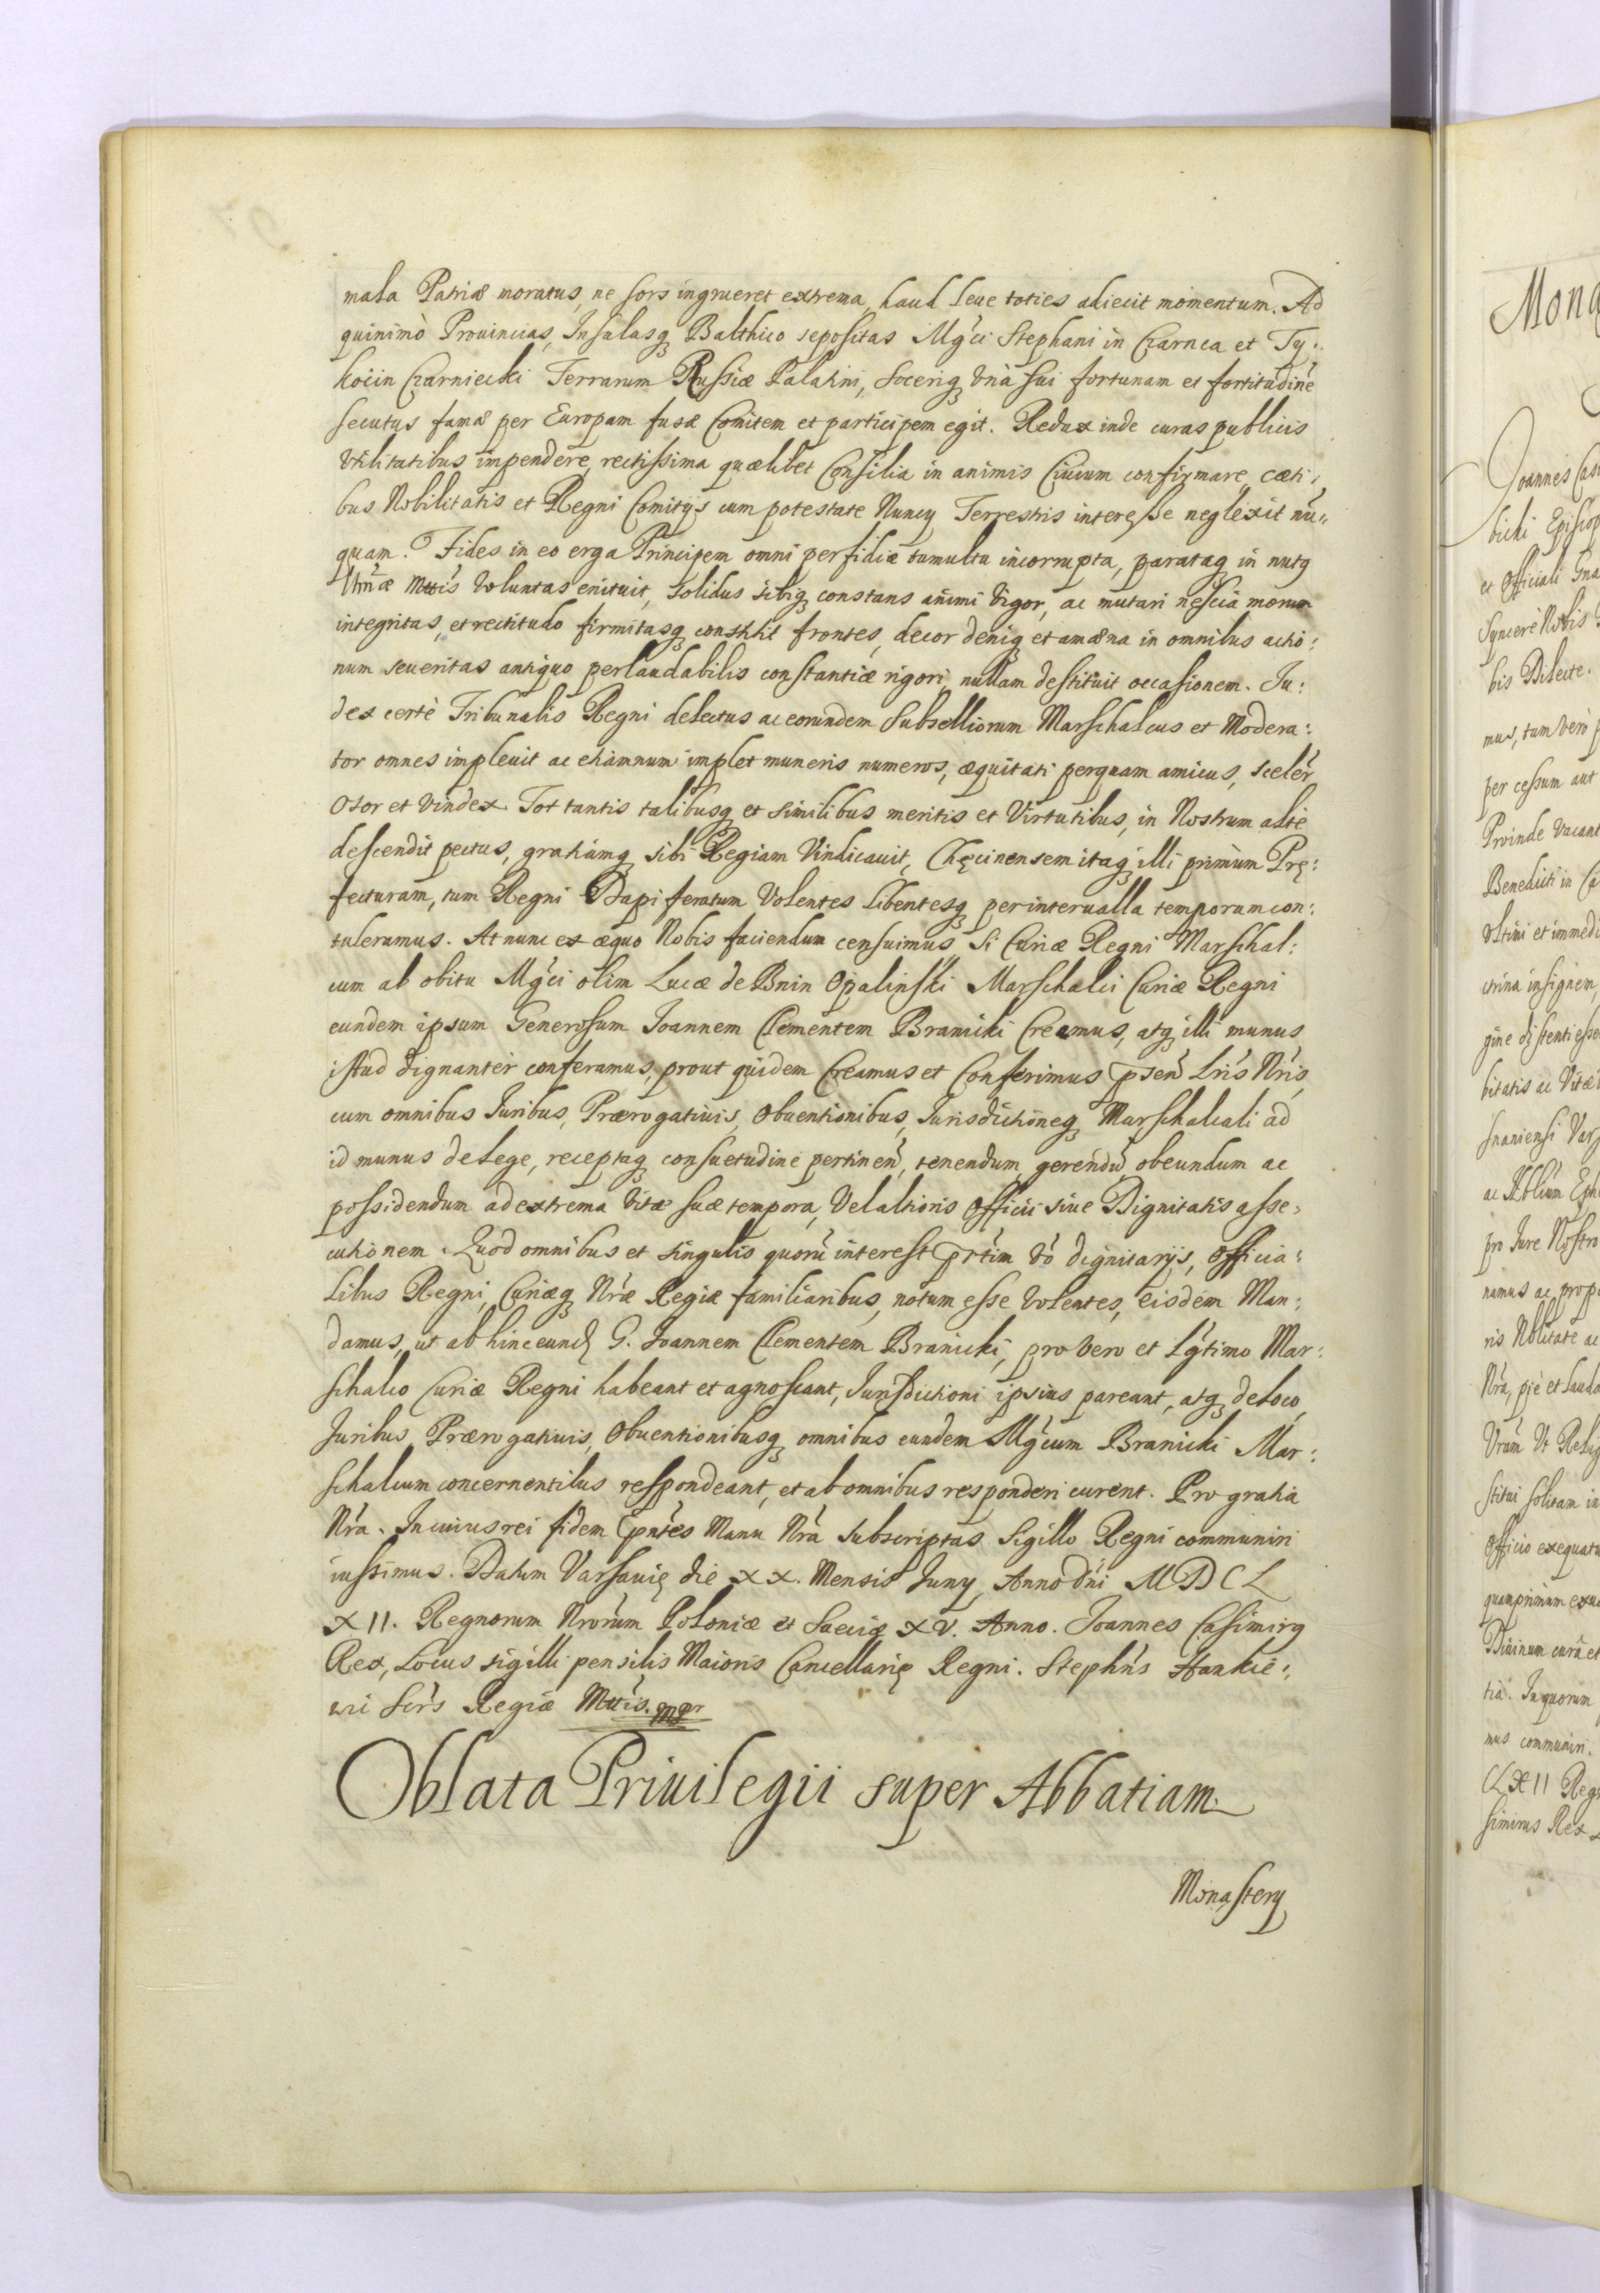 mala Patriæ moratus, ne sors ingrueret extrema, haud leue toties adiecit momentum. Ad
quinimò Prouincias, Insulasq Balthico sepositas Mgci Stephani in Czarnca et Ty:
kocin Czarniecki Terrarum Russiæ Palatini, Soceriq vnà sui fortunam et fortitudinē
secutus famæ per Europam fusæ Comitem et participem egit. Redux inde curas publicis
Vtilitatibus impendere, rectissima quælibet Consilia in animis Ciuium confirmare, cæti:
bus Nobilitatis et Regni Comitijs cum potestate Nuncy Terrestris interesse neglexit nū:
quam. Fides in eo erga Principem omni perfidiæ tumultu incorrupta, parataq in nutq
Mttis Voluntas enituit, solidus sibiq constans animi Vigor, ac mutari nescia morum
integritas et rectitudo firmitasq constitit frontes, decor deniq et amæna in omnibus actio:
num seueritas antiquo perlaudabilis constantiæ rigori, nullam destituit occasionem. Iu:
dex certè Tribunalis Regni delectus ac eorundem Subselliorum Marschalcus et Modera:
tor omnes impleuit ac etiamnum implet muneris numeros, æquitati perquam amicus, sceler
Osor et Vindex. Tot tantis talibusq et similibus meritis et Virtutibus, in Nostrum alte
descendit pectus, gratiamq sibi Regiam Vindicauit, Chęcinensem itaq illi primùm Prę:
fecturam, tum Regni Dapiferatum Volentes Libentesq per interualla temporum con:
tuleramus. At nunc ex æquo Nobis faciendum censuimus, Si Curiæ Regni Marschal:
cum ab obitu Mgci olim Lucæ de Bnin Opalinski Marschalci Curiæ Regni
eundem ipsum Generosum Ioannem Clementem Branicki Creamus, atq illi munus
istud dignanter conferamus, prout quidem Creamus et Conferimus psen Lris Nris,
cum omnibus Iuribus, Prærogatiuis, Obuentionibus, Iurisdictioneq Marschalcali ad
id munus de Lege, receptaq consuetudine pertinen, tenendum gerendū obeundum ac
possidendum ad extrema Vitæ suæ tempora, Vel altioris Officii siue Dignitatis asse:
cutionem. Quod omnibus et singulis quorū interest prtim vo dignitarijs, Officia:
libus Regni, Curiæq Nræ Regiæ familiaribus, notum esse Volentes, eisdem Man:
damus, ut ab hinc eund G. Ioannem Clementem Branicki, pro Vero et Lgtimo Mar:
schalco Curiæ Regni habeant et agnoscant, Iurisdictioni ipsius pareant, atq de loco,
Iuribus, Prærogatiuis, Obuentionibusq omnibus eundem Mgcum Branicki Mar:
schalcum concernentibus respondeant, et ab omnibus responderi curent. Pro gratia
Nra. In cuius rei fidem pntes Manu Nra Subscriptas Sigillo Regni communiri
iussimus. Datum Varsauię die XX. Mensis Iuny, Anno Dni MDCL
XII. Regnorum Nrorum Poloniæ et Sueciæ XV. Anno. Ioannes Casimirq
Rex, Locus sigilli pensilis Maioris Cancellarię Regni. Stephns Hankie:
wic Scrs Regiæ Mttis. mpr
Oblata Priuilegii super Abbatiam
Monastery
Mona
Ioannes Cas
bicki Episcop
et Officiali Gna
Syncerè Nobis
bis Dilecte.
mus, tum verò p
per cessum aut
Proinde Vacant
Benedicti in Ca
Vltimi et immedi
ctrina insignem,
bitatis ac Vitæ
snaniensi Var
pro Iure Nostro
namus ac propo
ris Nobilitate ac
Nra, piè et lauda
Vram Vt Relig
stitui solitam in
Officio exequatu
quamprimùm exua
Diuinum curā et
tia. In quorum
mus communiri.
CLXII Regn
simirus Rex